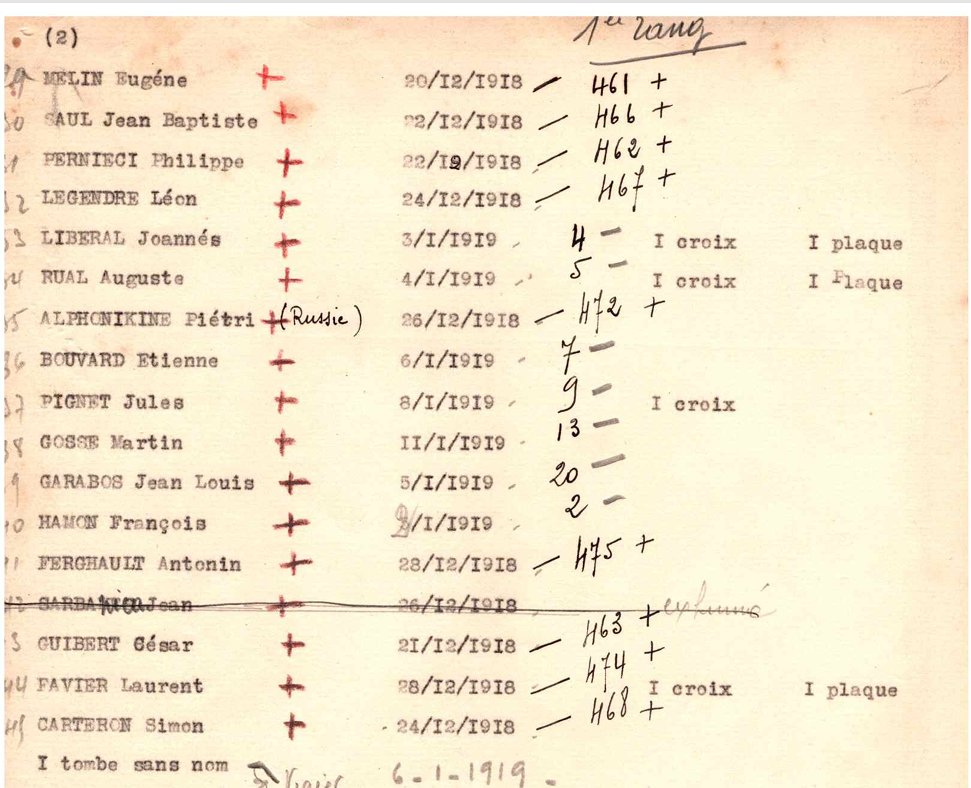 (2) 1er rang
29 MELIN Eugéne + 20/I2/I9I8 — 461 +
30 SAUL Jean Baptiste + 22/I2/I9I8 — 466 +
31 PERNIECI Philippe + 22/I2/I9I8 — 462 +
32 LEGENDRE Léon + 24/I2/I9I8 — 467 +
33 LIBERAL Joannés + 3/I/I9I9 - 4 — I croix I plaque
34 RUAL Auguste + 4/I/I9I9 - 5 — I croix I Plaque
35 ALPHONIKINE Piétri + (Russie) 26/I2/I9I8 — 472 +
36 BOUVARD Etienne + 6/I/I9I9 - 7 —
37 PIGNET Jules + 8/I/I9I9 - 9 — I croix
38 GOSSE Martin + II/I/I9I9 - 13 —
9 GARABOS Jean Louis + 5/I/I9I9 - 20 —
0 HAMON François + /I/I9I9 - 2 —
1 FERGHAULT Antonin + 28/I2/I9I8 — 475 +
42 Jean + 26/I2/I9I8 exhumé
3 GUIBERT César + 2I/I2/I9I8 — 463 +
44 FAVIER Laurent + 28/I2/I9I8 — 474 + I croix I plaque
45 CARTERON Simon + - 24/I2/I9I8 — 468 +
I tombe sans nom 6-1-1919-